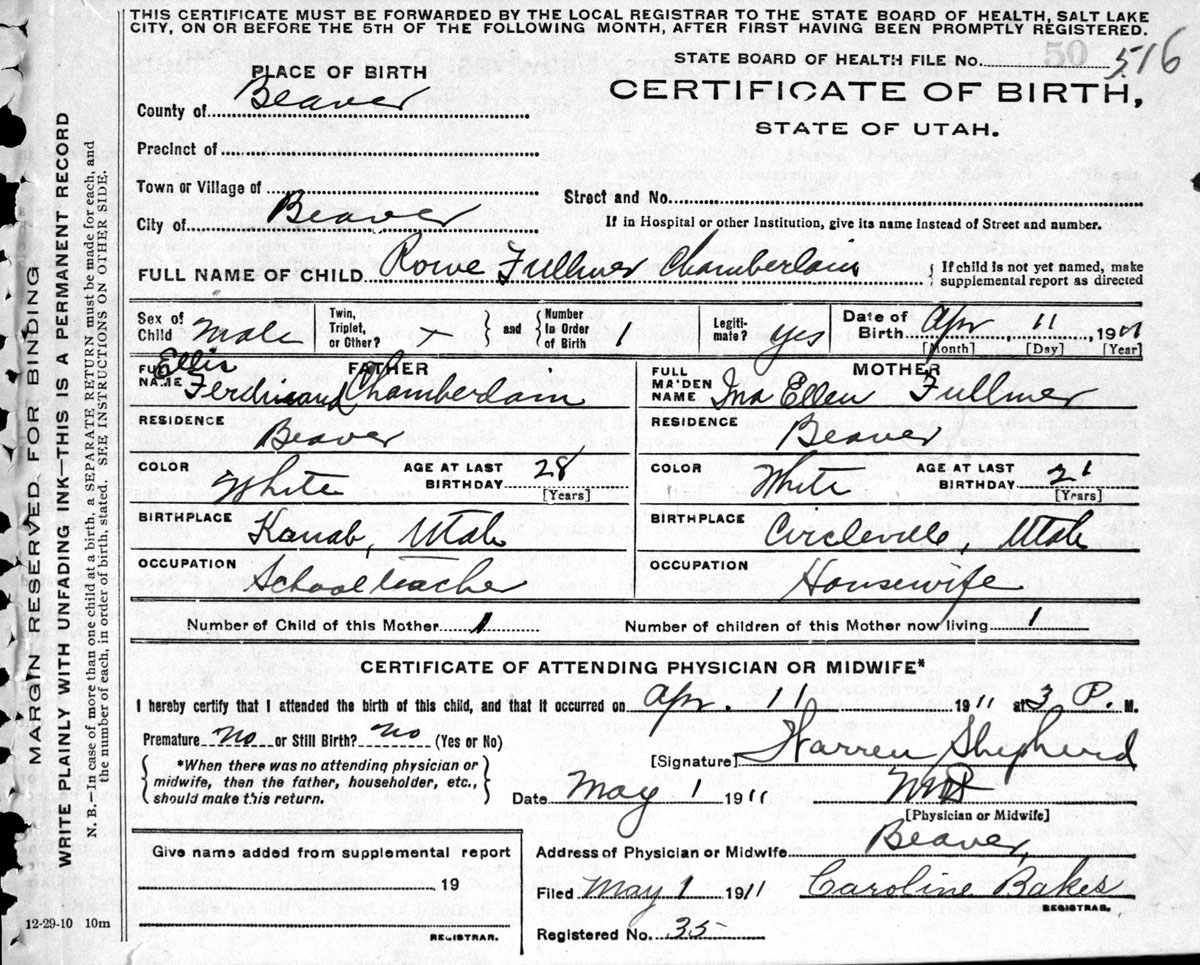 THIS CERTIFICATE MUST BE FORWARDED BY THE LOCAL REGISTRAR TO THE STATE BOARD OF HEALTH, SALT LAKE
CITY, ON OR BEFORE THE 5TH OF THE FOLLOWING MONTH, AFTER FIRST HAVING BEEN PROMPTLY REGISTERED.
STATE BOARD OF HEALTH FILE No. 50 516
PLACE OF BIRTH
CERTIFICATE OF BIRTH,
County of Beaver
STATE OF UTAH.
Precinct of
Town or Village of
Street and No.
City of Beaver
If in Hospital or other Institution, give its name instead of Street and number.
FULL NAME OF CHILD Rowe Fullmer Chamberlain { If child is not yet named, make
supplemental report as directed
Sex of Child Male
Twin, Triplet, or Other? x } and { Number In Order of Birth 1
Legitimate? yes
Date of Birth Apr 11, 1911
[Month] [Day] [Year]
FATHER
FULL NAME Ellis Ferdinand Chamberlain
RESIDENCE Beaver
COLOR White AGE AT LAST BIRTHDAY 28 [Years]
BIRTHPLACE Kanab, Utah
OCCUPATION School teacher
MOTHER
FULL MAIDEN NAME Ina Ellen Fullmer
RESIDENCE Beaver
COLOR White AGE AT LAST BIRTHDAY 21 [Years]
BIRTHPLACE Circleville, Utah
OCCUPATION Housewife
Number of Child of this Mother 1 Number of children of this Mother now living 1
CERTIFICATE OF ATTENDING PHYSICIAN OR MIDWIFE*
I hereby certify that I attended the birth of this child, and that it occurred on Apr. 11 1911 at 3 P. M.
Premature No or Still Birth? No (Yes or No)
{ *When there was no attending physician or
midwife, then the father, householder, etc.,
should make this return. }
[Signature] Warren Shepherd
Date May 1 1911 MD
[Physician or Midwife]
Give name added from supplemental report
19
REGISTRAR.
Address of Physician or Midwife Beaver,
Filed May 1 1911 Caroline Bakes
REGISTRAR.
Registered No. 35
12-29-10 10m
MARGIN RESERVED FOR BINDING
WRITE PLAINLY WITH UNFADING INK—THIS IS A PERMANENT RECORD
N. B.—In case of more than one child at a birth, a SEPARATE RETURN must be made for each, and
the number of each, in order of birth, stated. SEE INSTRUCTIONS ON OTHER SIDE.